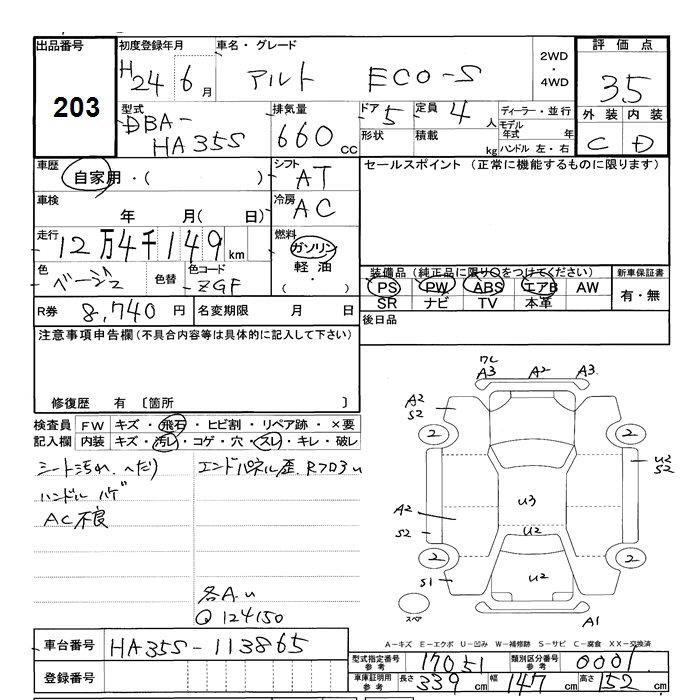 出品番号 初度登録年月 車名・グレード 2WD・4WD 評価点
203 H24 6月 アルト ECO-S 3.5
型式 DBA-HA35S 排気量 660cc ドア 5 定員 4人 ディーラー・並行 外装 内装
形状 積載 kg モデル年式 年 ハンドル 左・右 C D
車歴 自家用・( ) シフト AT セールスポイント (正常に機能するものに限ります)
車検 年 月( 日) 冷房 AC
走行 12万4千149km 燃料 ガソリン
軽油
( ・ )
色 ベージュ 色替 色コード ZGF 装備品 (純正品に限り○をつけてください) 新車保証書
PS PW ABS エアB AW 有・無
SR ナビ TV 本革
R券 8,740円 名変期限 月 日 後日品
注意事項申告欄(不具合内容等は具体的に記入して下さい)
修復歴 有 〔箇所 〕
検査員 FW キズ・飛石・ヒビ割・リペア跡・×要
記入欄 内装 キズ・汚レ・コゲ・穴・スレ・キレ・破レ
シート汚れ.へたり エンドパネル歪. Rフロ3u
ハンドル ハゲ
AC不良
各A.u
Q 124150
7L
A3 A2 A3
A2
S2
2 2
U2
S2
U3
A2
S2
U2
2 2
S1 U2
スペア A1
A-キズ E-エクボ U-凹み W-補修跡 S-サビ C-腐食 XX-交換済
車台番号 HA35S-113865
登録番号
型式指定番号 参考 17051 類別区分番号 参考 0001
車庫証明用 参考 長さ 339cm 幅 147cm 高さ 152cm